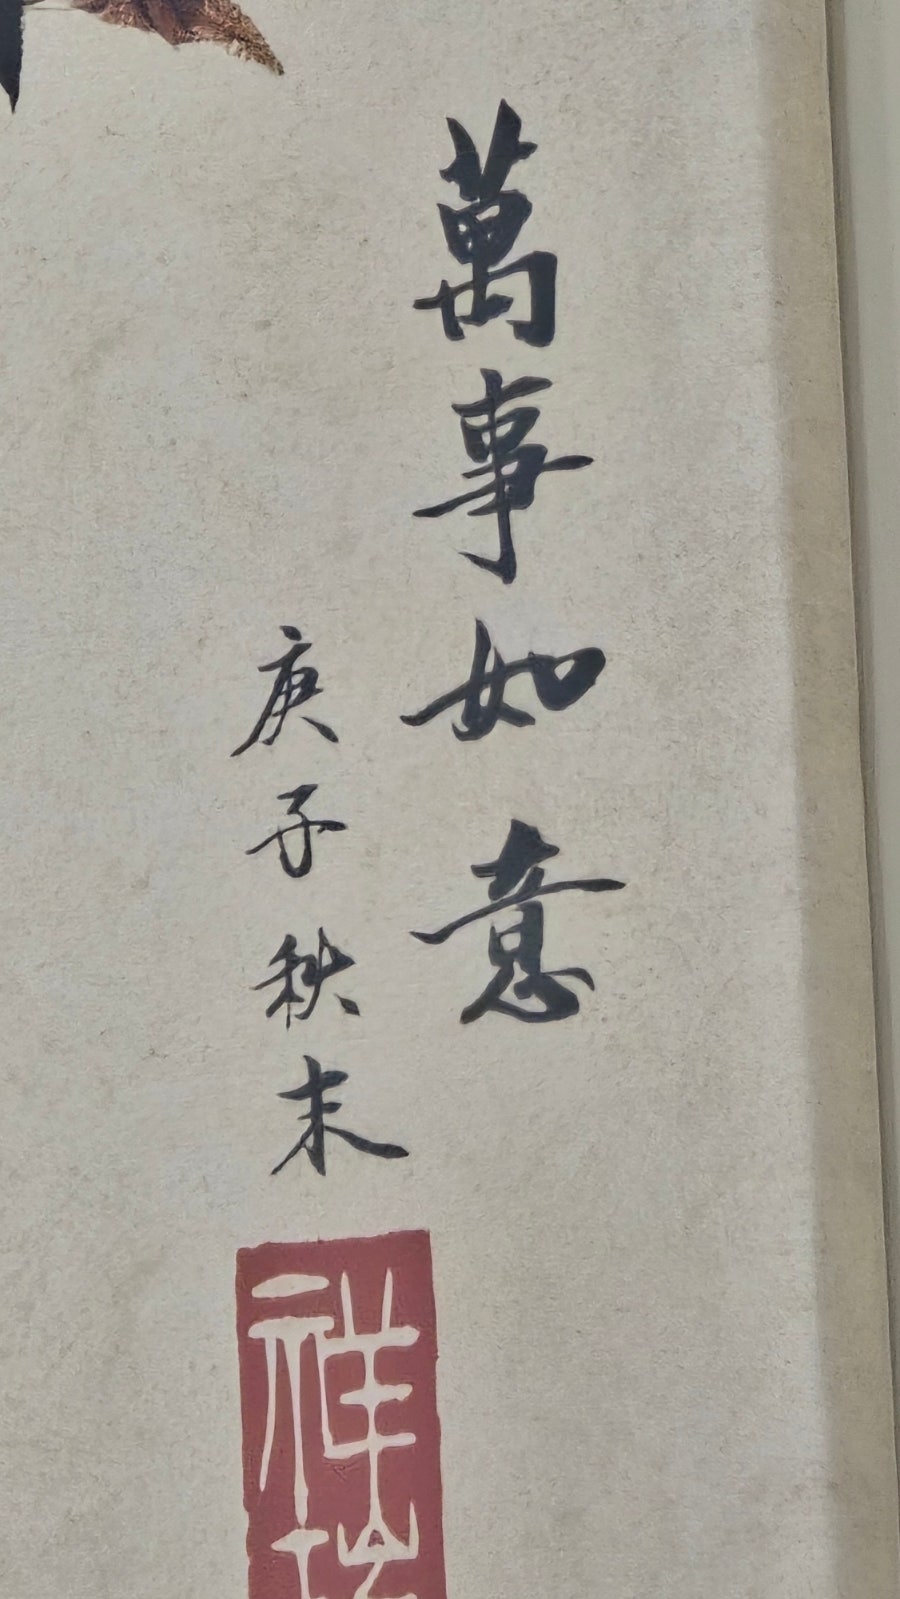 萬事如意
庚子秋末
祥